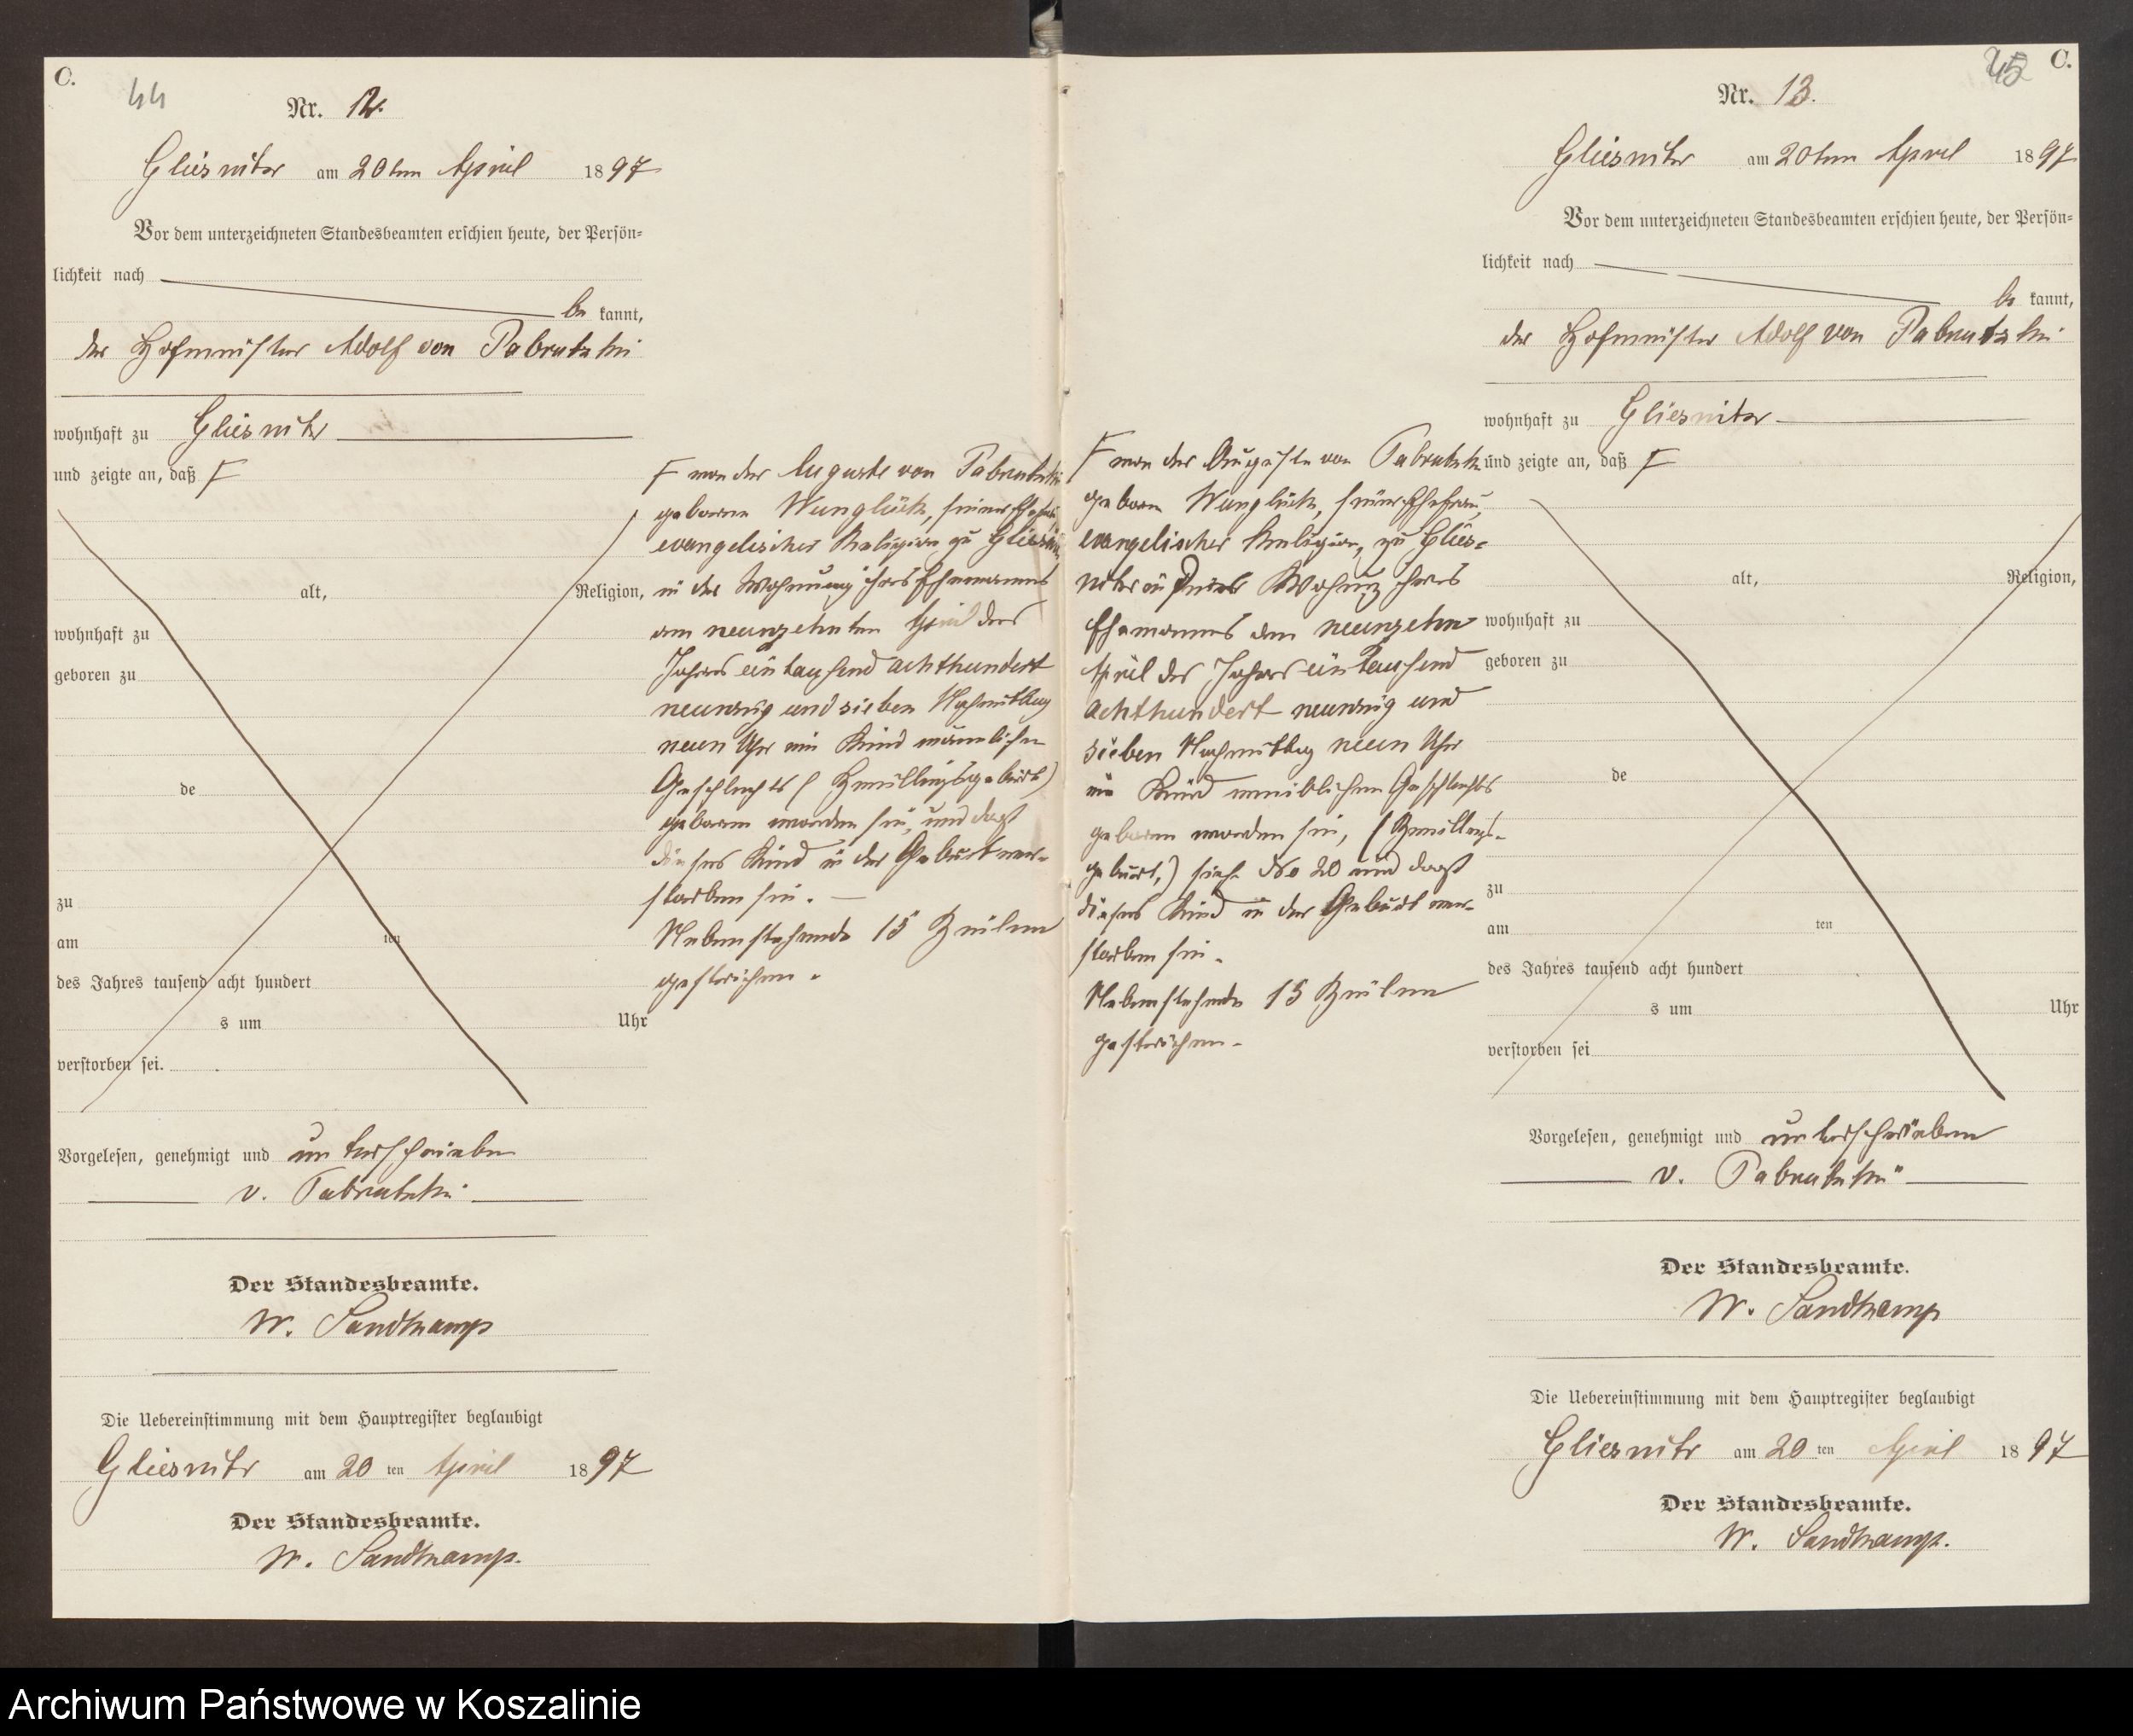 C.
44
Nr. 12.
Gliesnitz am 20ten April 1897
Vor dem unterzeichneten Standesbeamten erschien heute, der Persön-
lichkeit nach
be kannt,
der Hofmeister Adolf von Pabrutzki
wohnhaft zu Gliesnitz
und zeigte an, daß F
alt, Religion,
wohnhaft zu
geboren zu
de
zu
am ten
des Jahres tausend acht hundert
s um Uhr
verstorben sei.
F von der Auguste von Pabrutzki
geborene Wunglück, seiner Ehefrau
evangelischer Religion zu Gliesnitz
in der Wohnung ihres Ehemannes
am neunzehnten April des
Jahres eintausend achthundert
neunzig und sieben Nachmittag
neun Uhr ein Kind männlichen
Geschlechts (Zwillingsgeburt)
geboren worden sei, und daß
dieses Kind in der Geburt ver-
storben sei.
Nebenstehende 15 Zeilen
gestrichen.
Vorgelesen, genehmigt und unterschrieben
v. Pabrutzki
Der Standesbeamte.
W. Sandkamp
Die Uebereinstimmung mit dem Hauptregister beglaubigt
Gliesnitz am 20 ten April 1897
Der Standesbeamte.
W. Sandkamp.
45 C.
Nr. 13.
Gliesnitz am 20ten April 1897
Vor dem unterzeichneten Standesbeamten erschien heute, der Persön-
lichkeit nach
be kannt,
der Hofmeister Adolf von Pabrutzki
wohnhaft zu Gliesnitz
und zeigte an, daß F
alt, Religion,
wohnhaft zu
geboren zu
de
zu
am ten
des Jahres tausend acht hundert
s um Uhr
verstorben sei
F von der Auguste von Pabrutzki
geboren Wunglück, seiner Ehefrau,
evangelischer Religion, zu Glies-
nitz in Wohnung ihres
Ehemannes am neunzehn
April des Jahres eintausend
achthundert neunzig und
sieben Nachmittag neun Uhr
ein Kind weiblichen Geschlechts
geboren worden sei, (Zwillings-
geburt,) siehe No 20 und daß
dieses Kind in der Geburt ver-
storben sei.
Nebenstehende 15 Zeilen
gestrichen.
Vorgelesen, genehmigt und unterschrieben
v. Pabrutzki
Der Standesbeamte.
W. Sandkamp
Die Uebereinstimmung mit dem Hauptregister beglaubigt
Gliesnitz am 20 ten April 1897
Der Standesbeamte.
W. Sandkamp.
Archiwum Państwowe w Koszalinie